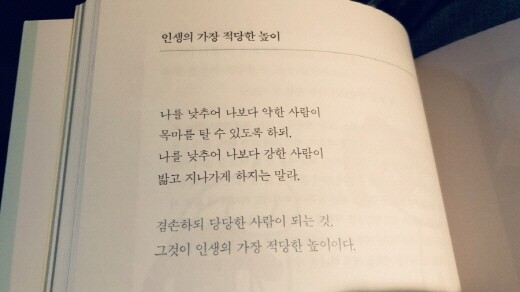 인생의 가장 적당한 높이
나를 낮추어 나보다 약한 사람이
목마를 탈 수 있도록 하되,
나를 낮추어 나보다 강한 사람이
밟고 지나가게 하지는 말라.
겸손하되 당당한 사람이 되는 것.
그것이 인생의 가장 적당한 높이이다.